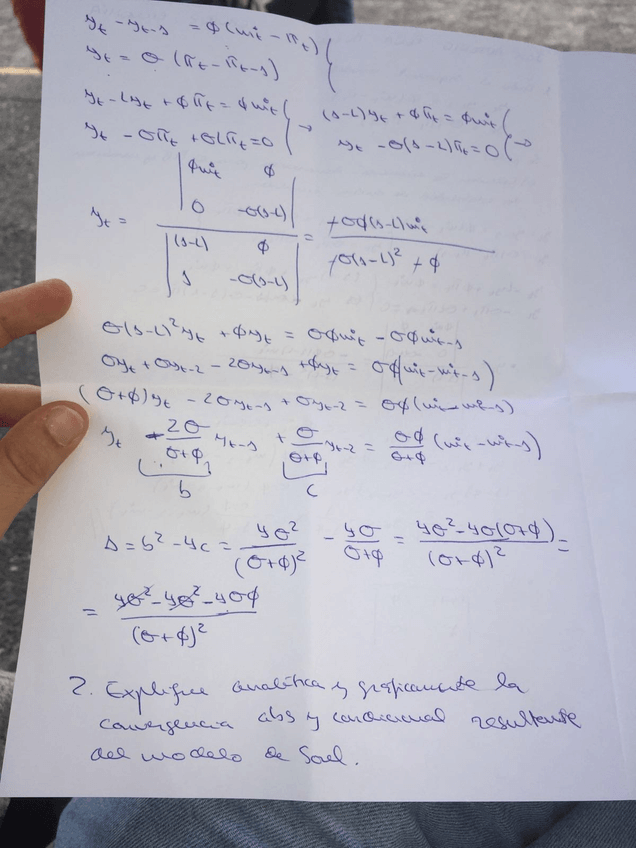 y_t - y_{t-1} = ϕ(ṁ_t - π_t)
y_t = σ(π_t - π_{t-1})
y_t - Ly_t + ϕπ_t = ϕṁ_t } → (1-L)y_t + ϕπ_t = ϕṁ_t } →
y_t - σπ_t + σLπ_t = 0 } y_t - σ(1-L)π_t = 0
y_t = |ϕṁ_t ϕ; 0 -σ(1-L)| / |(1-L) ϕ; 1 -σ(1-L)| = +σϕ(1-L)ṁ_t / +σ(1-L)² + ϕ
σ(1-L)²y_t + ϕy_t = σϕṁ_t - σϕṁ_{t-1}
σy_t + σy_{t-2} - 2σy_{t-1} + ϕy_t = σϕ(ṁ_t - ṁ_{t-1})
(σ+ϕ)y_t - 2σy_{t-1} + σy_{t-2} = σϕ(ṁ_t - ṁ_{t-1})
y_t - 2σ/(σ+ϕ) y_{t-1} + σ/(σ+ϕ) y_{t-2} = σϕ/(σ+ϕ) (ṁ_t - ṁ_{t-1})
b c
Δ = b² - 4c = 4σ²/(σ+ϕ)² - 4σ/(σ+ϕ) = 4σ² - 4σ(σ+ϕ)/(σ+ϕ)² =
= 4σ² - 4σ² - 4σϕ/(σ+ϕ)²
2. Explique analítica y gráficamente la
convergencia abs y condicional resultante
del modelo de